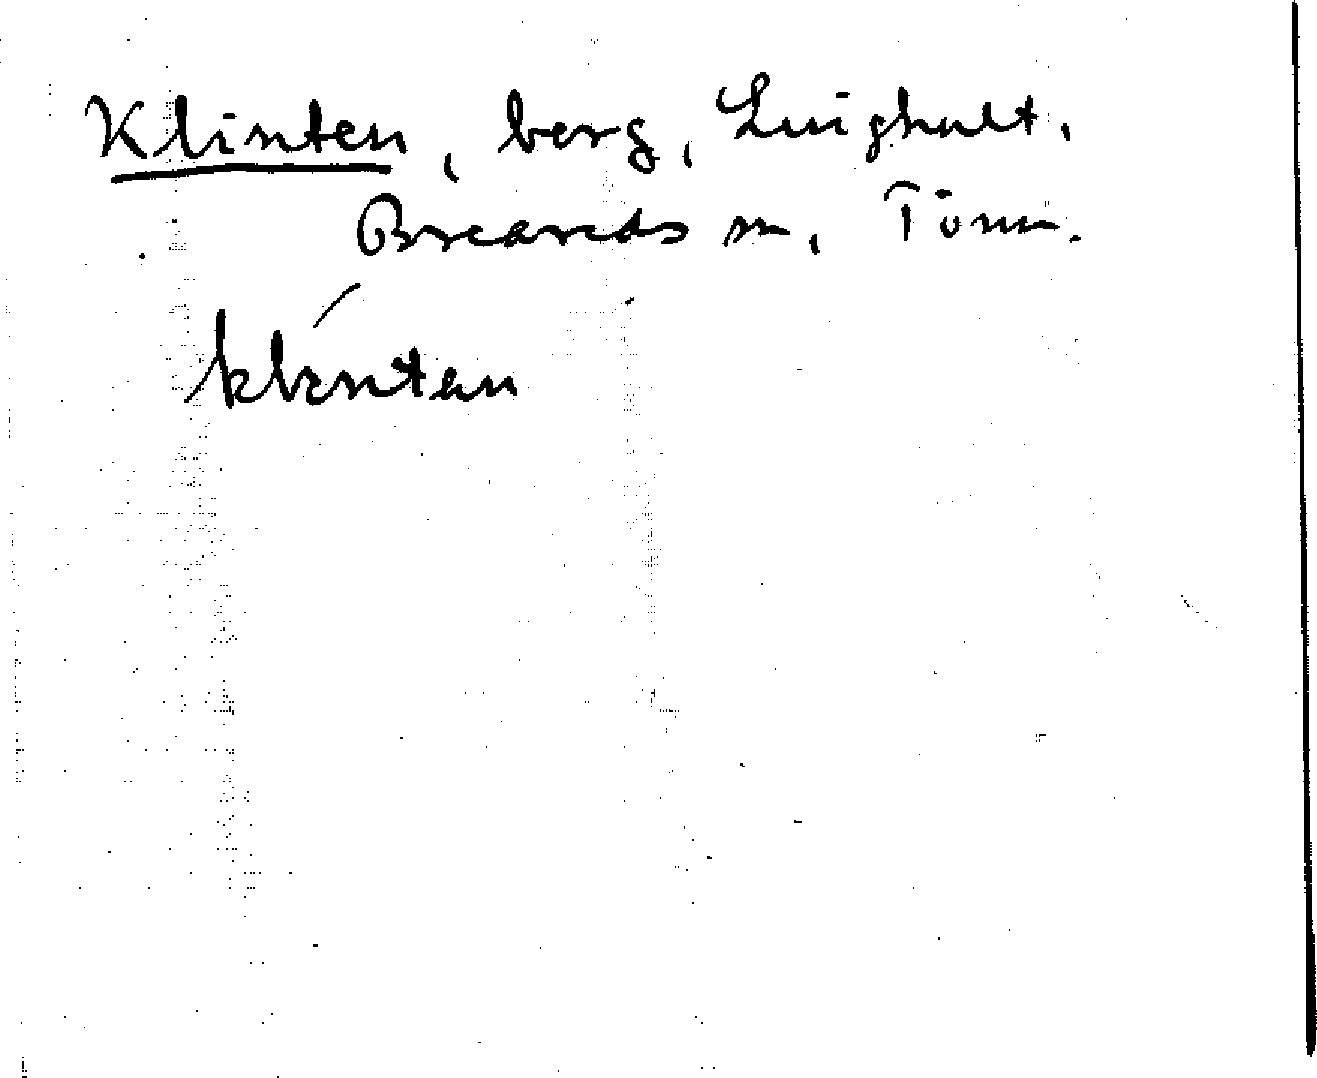 Klinten, berg, Ljunghult,
Breareds sn, Tönn.
klentən